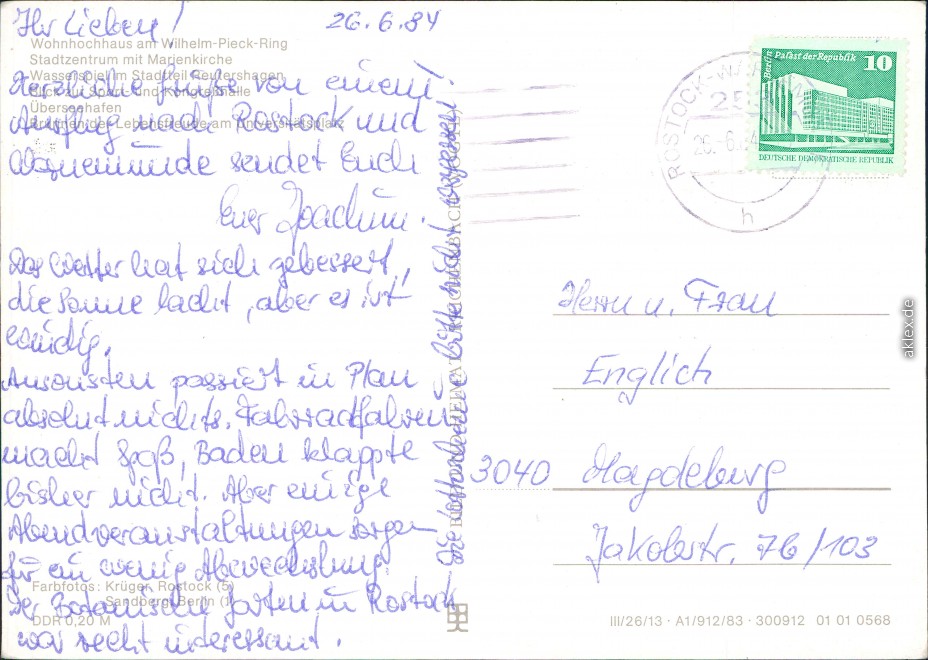 Ihr Lieben!
26.6.84
Wohnhochhaus am Wilhelm-Pieck-Ring
Stadtzentrum mit Marienkirche
Wasserspiel im Stadtteil Reutershagen
Sport- und Kongreßhalle
Überseehafen
Brunnen der Lebensfreude am Universitätsplatz
Herzliche Grüße von einem
Ausflug nach Rostock und
Warnemünde sendet Euch
Euer Joachim.
Das Wetter hat sich gebessert,
die Sonne lacht, aber es ist
windig.
Ansonsten passiert in Plan
absolut nichts. Fahrradfahren
macht Spaß, Baden klappte
bisher nicht. Aber einige
Abendveranstaltungen sorgen
für ein wenig Abwechslung.
Der Botanische Garten in Rostock
war recht interessant.
Farbfotos: Krüger, Rostock (5)
Sandberg, Berlin (1)
DDR 0,20 M
Die Lottoscheine bitte nicht vergessen!
BILD UND HEIMAT REICHENBACH
Berlin Palast der Republik
10
DEUTSCHE DEMOKRATISCHE REPUBLIK
ROSTOCK-
25
26.-6.84
h
Herrn u. Frau
Englich
3040 Magdeburg
Jakobstr. 7b/103
III/26/13 · A1/912/83 · 300912 01 01 0568
aklex.de